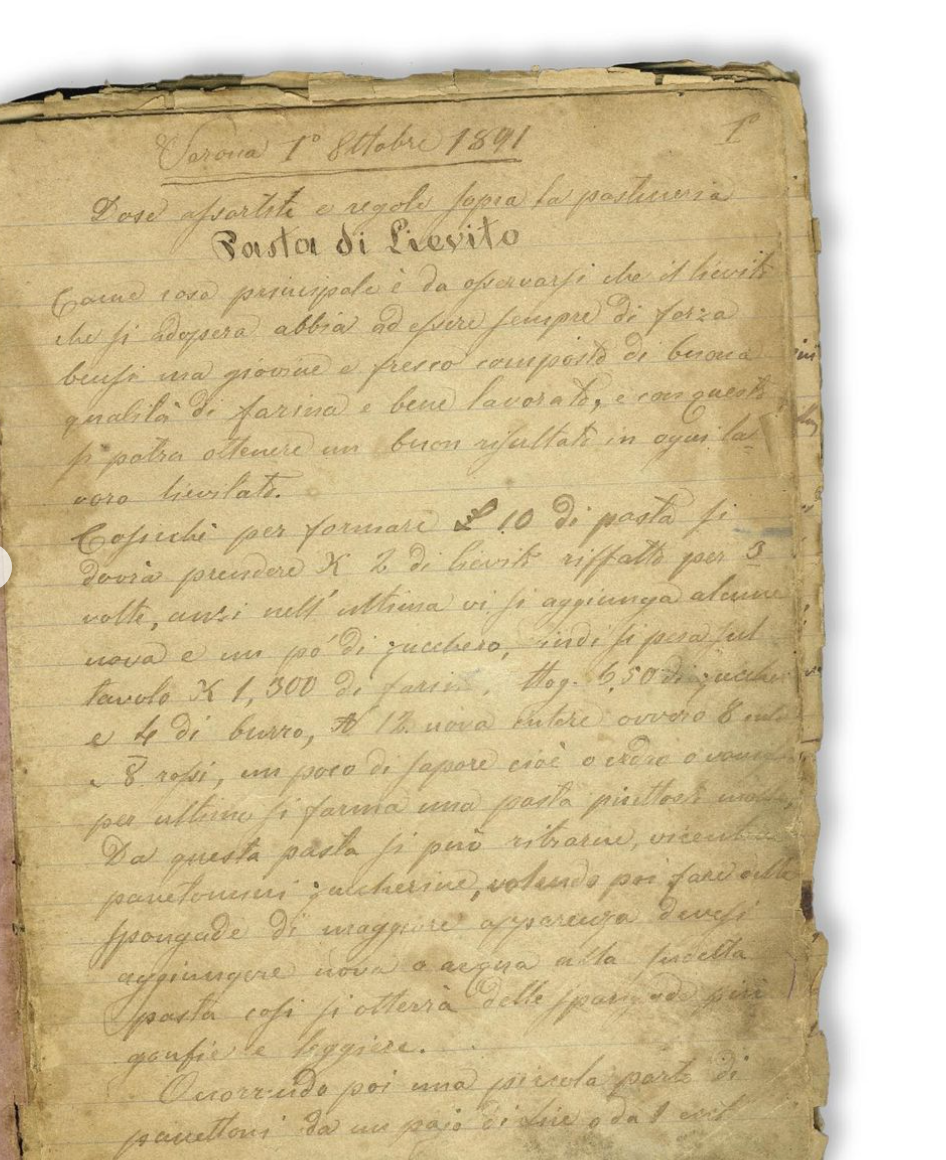 Verona 1° Ottobre 1891
1°
Dose assortite e regole sopra la pasticeria
Pasta di Lievito
Come cosa principale è da osservarsi che il lievito
che si adopera abbia ad essere sempre di forza
bensi ma giovine e fresco composto di buona
qualità di farina e bene lavorato, e con questo
si potra ottenere un buon risultato in ogni la-
voro lievitato.
Cosichè per formare 10 di pasta si
dovrà prendere K 2 di lievito riffatto per 3
volte, anzi nell' ultima vi si aggiunga alcune
uova e un pó di zucchero, indi si pesa sul
tavolo K 1,300 di farina, Ettog. 6,50 di zucchero
e 4 di burro, N 12 uova intere ovvero 8
e 8 rossi, un poco di sapore cioè o cedro o
per ultimo si farma una pasta piuttosto molle,
Da questa pasta si può ritrarne,
panetonini zuccherine, volendo poi fare delle
spongade di maggiore apparenza devesi
aggiungere uova o acqua alla sudetta
pasta cosi si otterrà delle spongade più
gonfie e leggiere.
Ocorrendo poi una piccola parte di
panettoni da un pajo di Lire o da 1